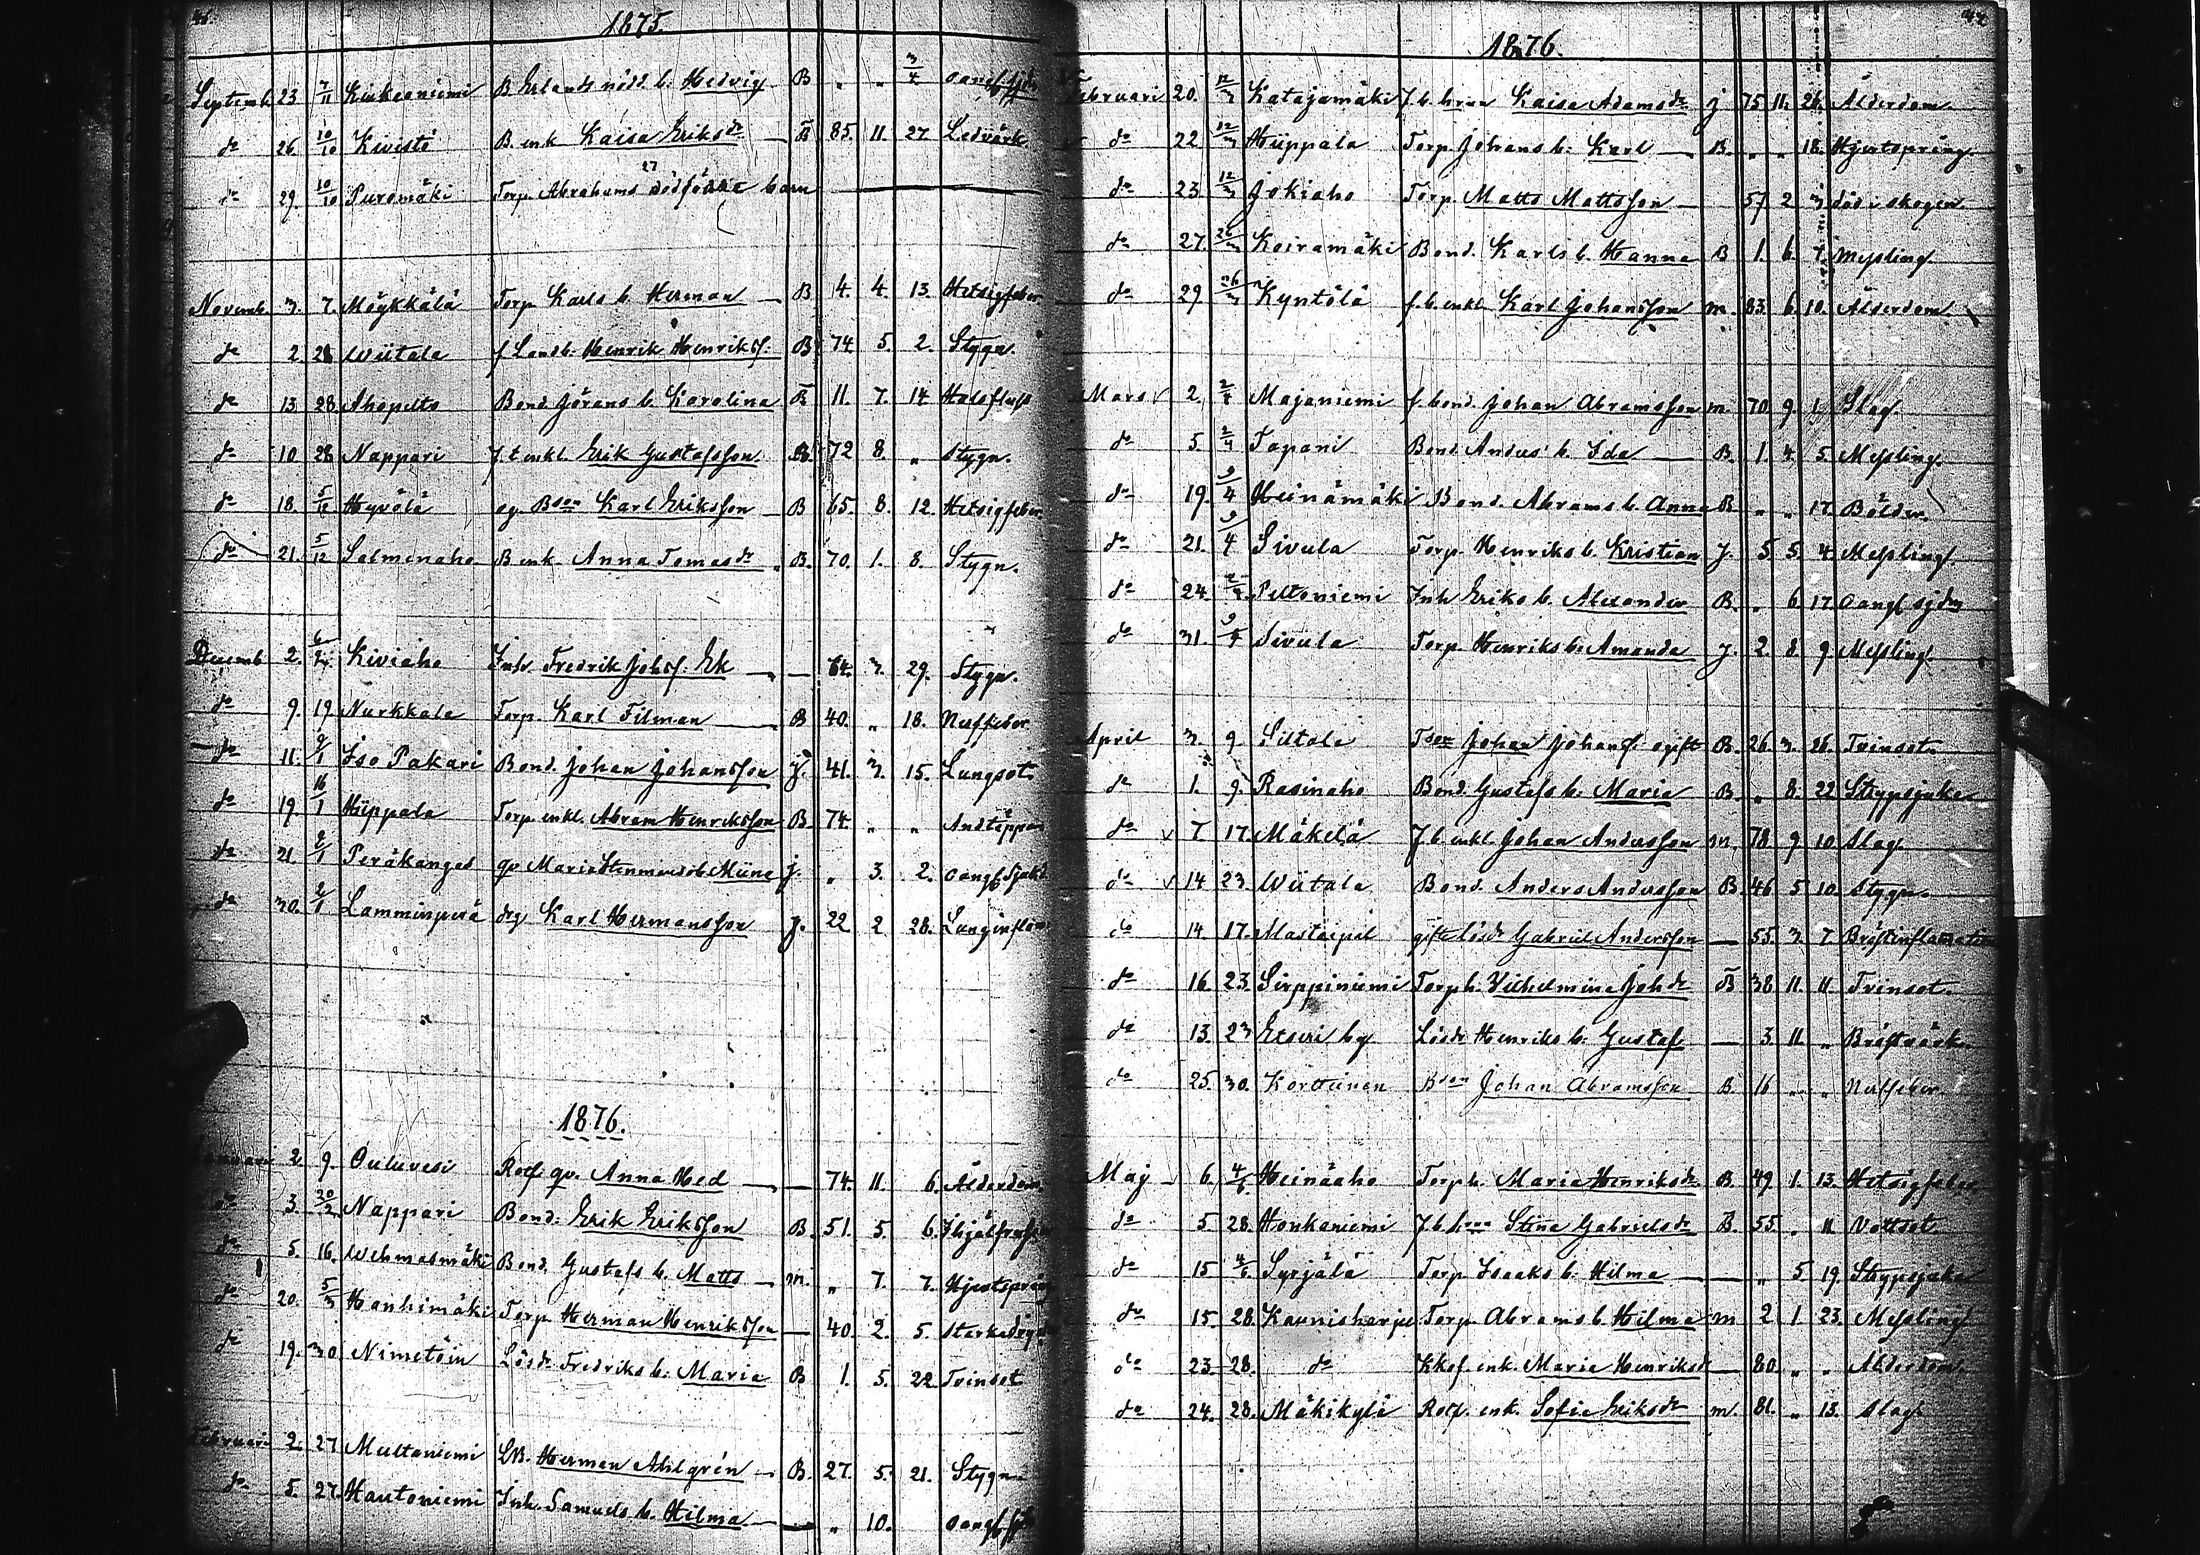 46.
1875.
Septemb. 23 7/11 Kiukeoniemi B. Erlands nödd. b. Hedvig B „ „ 3/4 oangf. sjd
do 26. 10/10 Kivistö B. enk Kaisa Eriksdr — B 85. 11. 27. Ledvärk
do 29. 10/10 Puromäki Torp. Abrahams 27 dödfödde barn
Novemb. 3. 7. Möykkälä Torp Karls b. Herman — B 4. 4. 13. Hetsigfeber
do 2. 28 Wiitala f. Landb. Henrik Henriksf. B 74. 5. 2. Stygn.
do 13. 28. Ahopelto Bond. Jörans b. Karolina B 11. 7. 14 Halsfluss
do 10 28 Nappari f. t. enkl. Erik Gustafsson B. 72 8. „ Stygn.
do 18. 5/12 Hyvölä og. Bson Karl Eriksson B 65. 8. 12. Hetsigfeber
do 21. 5/12 Salmenaho B enk. Anna Tomasdr B. 70. 1. 8. Stygn.
Decemb 2. Kiviaho Inh. Fredrik Johsf. Ek — 64. 3. 29. Stygn.
do 9. 19 Nurkkala Torp. Karl Filman — B 40. „ 18. Nerffeber
do 11. 9/1 Iso Pakari Bond. Johan Johansson j. 41. 3. 15. Lungsot.
do 19. 16/1 Hiippala Torp. enkl. Abram Henriksson B. 74. „ „ Andtäppa
do 21. 2/1 Peräkangas qv Maria Stenmans ob. Miina j. „ 3. 2. oangf. sjukd
do 30. 2/1 Lamminperä drg Karl Hermansson j. 22 2 28. Lunginflam
1876.
Januari 2. 9. Ouluvesi Rotf. qv. Anna Hed — 74. 11. 6. Ålderdom.
do 3. 20/2 Nappari Bond: Erik Eriksson B. 51. 5. 6. Ihjälfrusen
do 5. 16. Wehmasmäki Bond. Gustafs b. Matts — m. „ 7. 7. Hjertspräng
do 20. 5/3 Hanhimäki Torp. Herman Henriksson — 40. 2. 5.
do 19. 30 Nimetöin Lösdr Fredriks b. Maria B 1. 5. 22 Tvinsot
Februari 2. 27 Multaniemi LB. Herman Ahlgrén — B. 27. 5. 21. Stygn
do 5. 27. Hautoniemi Inh. Samuels b. Hilma — „ 10. oangf. sjd
1876.
Februari 20. 12/3 Katajamäki f. b. hrun Kaisa Adamsdr j 75 11. 26. Ålderdom.
do 22 12/3 Hiippala Torp. Johans b: Karl — B. „ „ 18. Hjertspräng.
do 23 12/3 Jokiaho Torp. Matts Mattsson — 57. 2 3 död i skogen.
do 27. 26/3 Koiramäki Bond. Karls b. Hanna B 1. 6. 7. Messling.
do 29 26/3 Kyntölä f. b. enkl Karl Johansson m. 83. 6. 10. Ålderdom.
Mars 2. 2/4 Majaniemi f. bond. Johan Abramsson m 70. 9. 1. Slag.
do 5. 2/4 Tapani Bond. Anders' b. Ida — B. 1. 4. 5. Messling.
do 19. 9/4 Heinämäki Bond. Abrams b. Anna B. „ „ 17. Bölder.
do 21. 9/4 Sivula Torp. Henriks b. Kristian j. 5. 5. 4. Messling.
do 24. Peltoniemi Inh Eriks b. Alexander B. „ 6 17. oangf. sjdm
do 31. 9/4 Sivula Torp. Henriks b: Amanda j. 2. 8. 9. Messling.
April 3. 9. Siltala Tson Johan Johansf. ogift B. 26. 3. 26. Tvinsot.
do 1. 9. Rasinaho Bond. Gustafs b: Maria B. „ 8. 22 Strypsjuka
do 7 17. Mäkelä f. b. enkl. Johan Andersson m. 78. 9 10. Slag.
do 14. 23. Wiitala Bond. Anders Andersson B. 46. 5. 10. Stygn.
do 14. 17. gifte lösdr Gabriel Andersson — 55. 3. 7. Bröstinflamation
do 16. 23. Sirppiniemi Torp h. Vilhelmina Johdr B 38. 11. 11. Tvinsot.
do 13. 23 Etseri by Lösdr Henriks b: Gustaf — 3. 11. „ Bröstvärk.
do 25. 30. Korttinen Bson Johan Abramsson B. 16 „ „ Nerffeber.
Maj 6. 4/6 Heinäaho Torp h. Maria Henriksdr B. 49. 1. 13. Hetsigfeber
do 5. 28. Honkaniemi f. b. hrun Stina Gabrielsdr B. 55. „ 11 Vattsot.
do 15 4/6 Syrjälä Torp Isaaks b: Hilma — „ 5 19. Strypsjuka
do 15. 28. Kaunisharju Torp. Abrams b. Hilma m 2. 1. 23. Messling
do 23. 28. do enk. Maria Henriksd — 80. „ „ Ålderdom.
do 24. 28. Mäkikylä Rotf. enk. Sofia Eriksdr m. 81. „ 13. Slag.